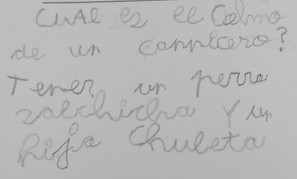 Cual es el Colmo
de un carnicero?
Tener un perro
salchicha y un
hijo Chuleta